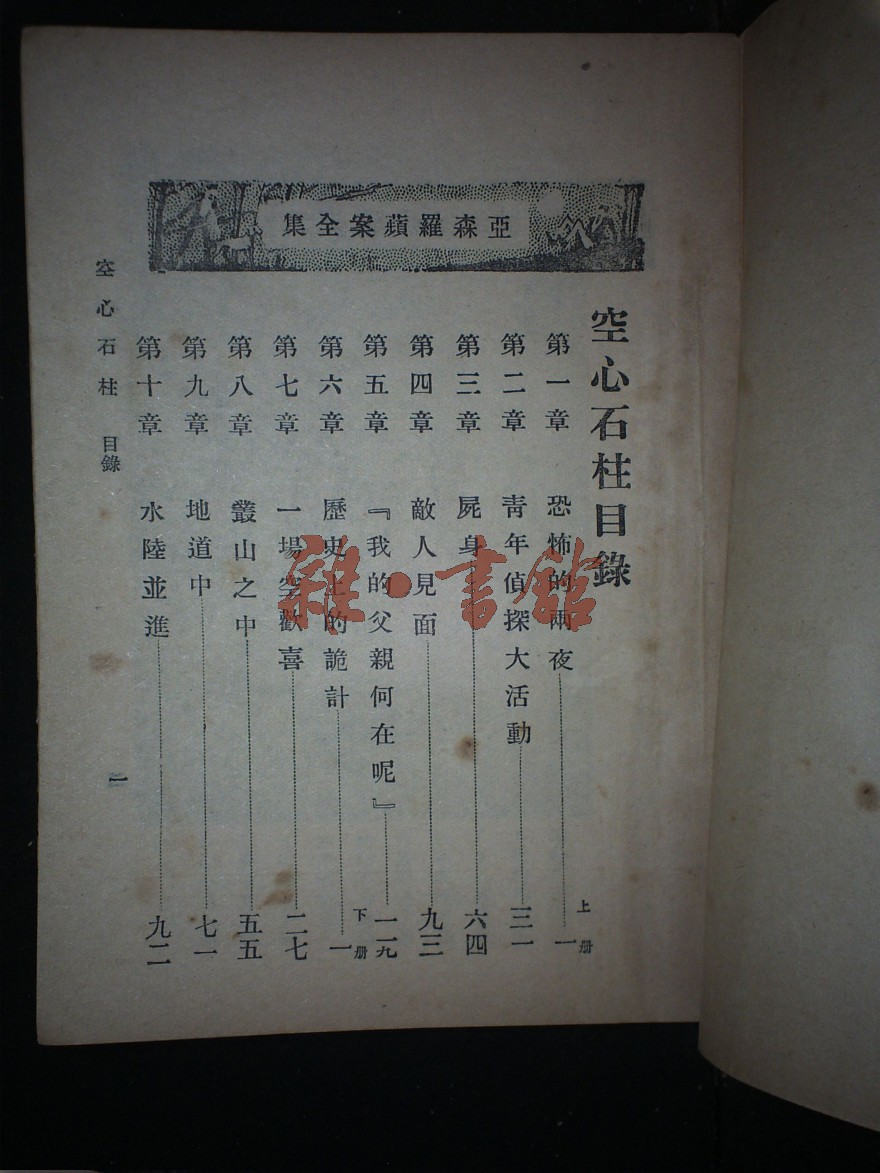 亞森羅蘋案全集
空心石柱目錄
第一章 恐怖的兩夜 上册 一
第二章 青年偵探大活動 三一
第三章 屍身 六四
第四章 敵人見面 九三
第五章 『我的父親何在呢』 一一九
第六章 歷史上的詭計 下册 一
第七章 一場空歡喜 二七
第八章 叢山之中 五五
第九章 地道中 七一
第十章 水陸並進 九二
空心石柱 目錄
一
雜·書館